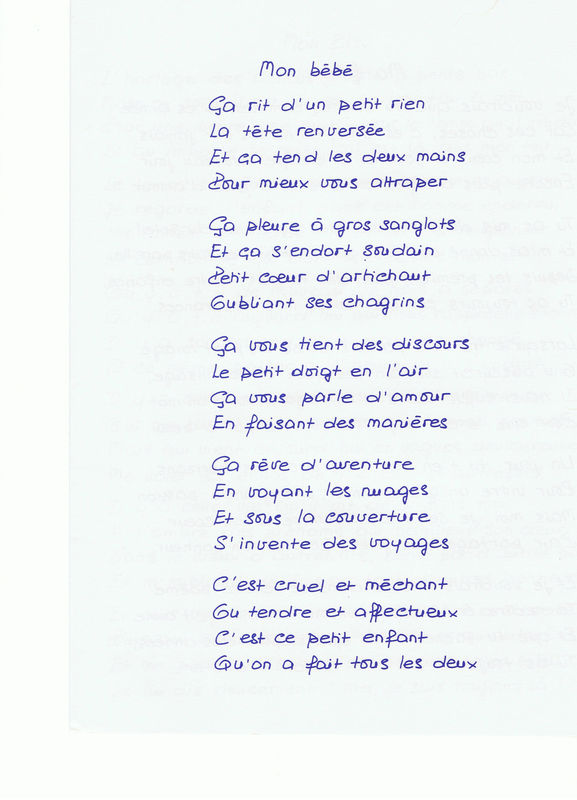 Mon bébé
Ça rit d'un petit rien
La tête renversée
Et ça tend les deux mains
Pour mieux vous attraper
Ça pleure à gros sanglots
Et ça s'endort soudain
Petit cœur d'artichaut
Oubliant ses chagrins
Ça vous tient des discours
Le petit doigt en l'air
Ça vous parle d'amour
En faisant des manières
Ça rêve d'aventure
En voyant les nuages
Et sous la couverture
S'invente des voyages
C'est cruel et méchant
Ou tendre et affectueux
C'est ce petit enfant
Qu'on a fait tous les deux